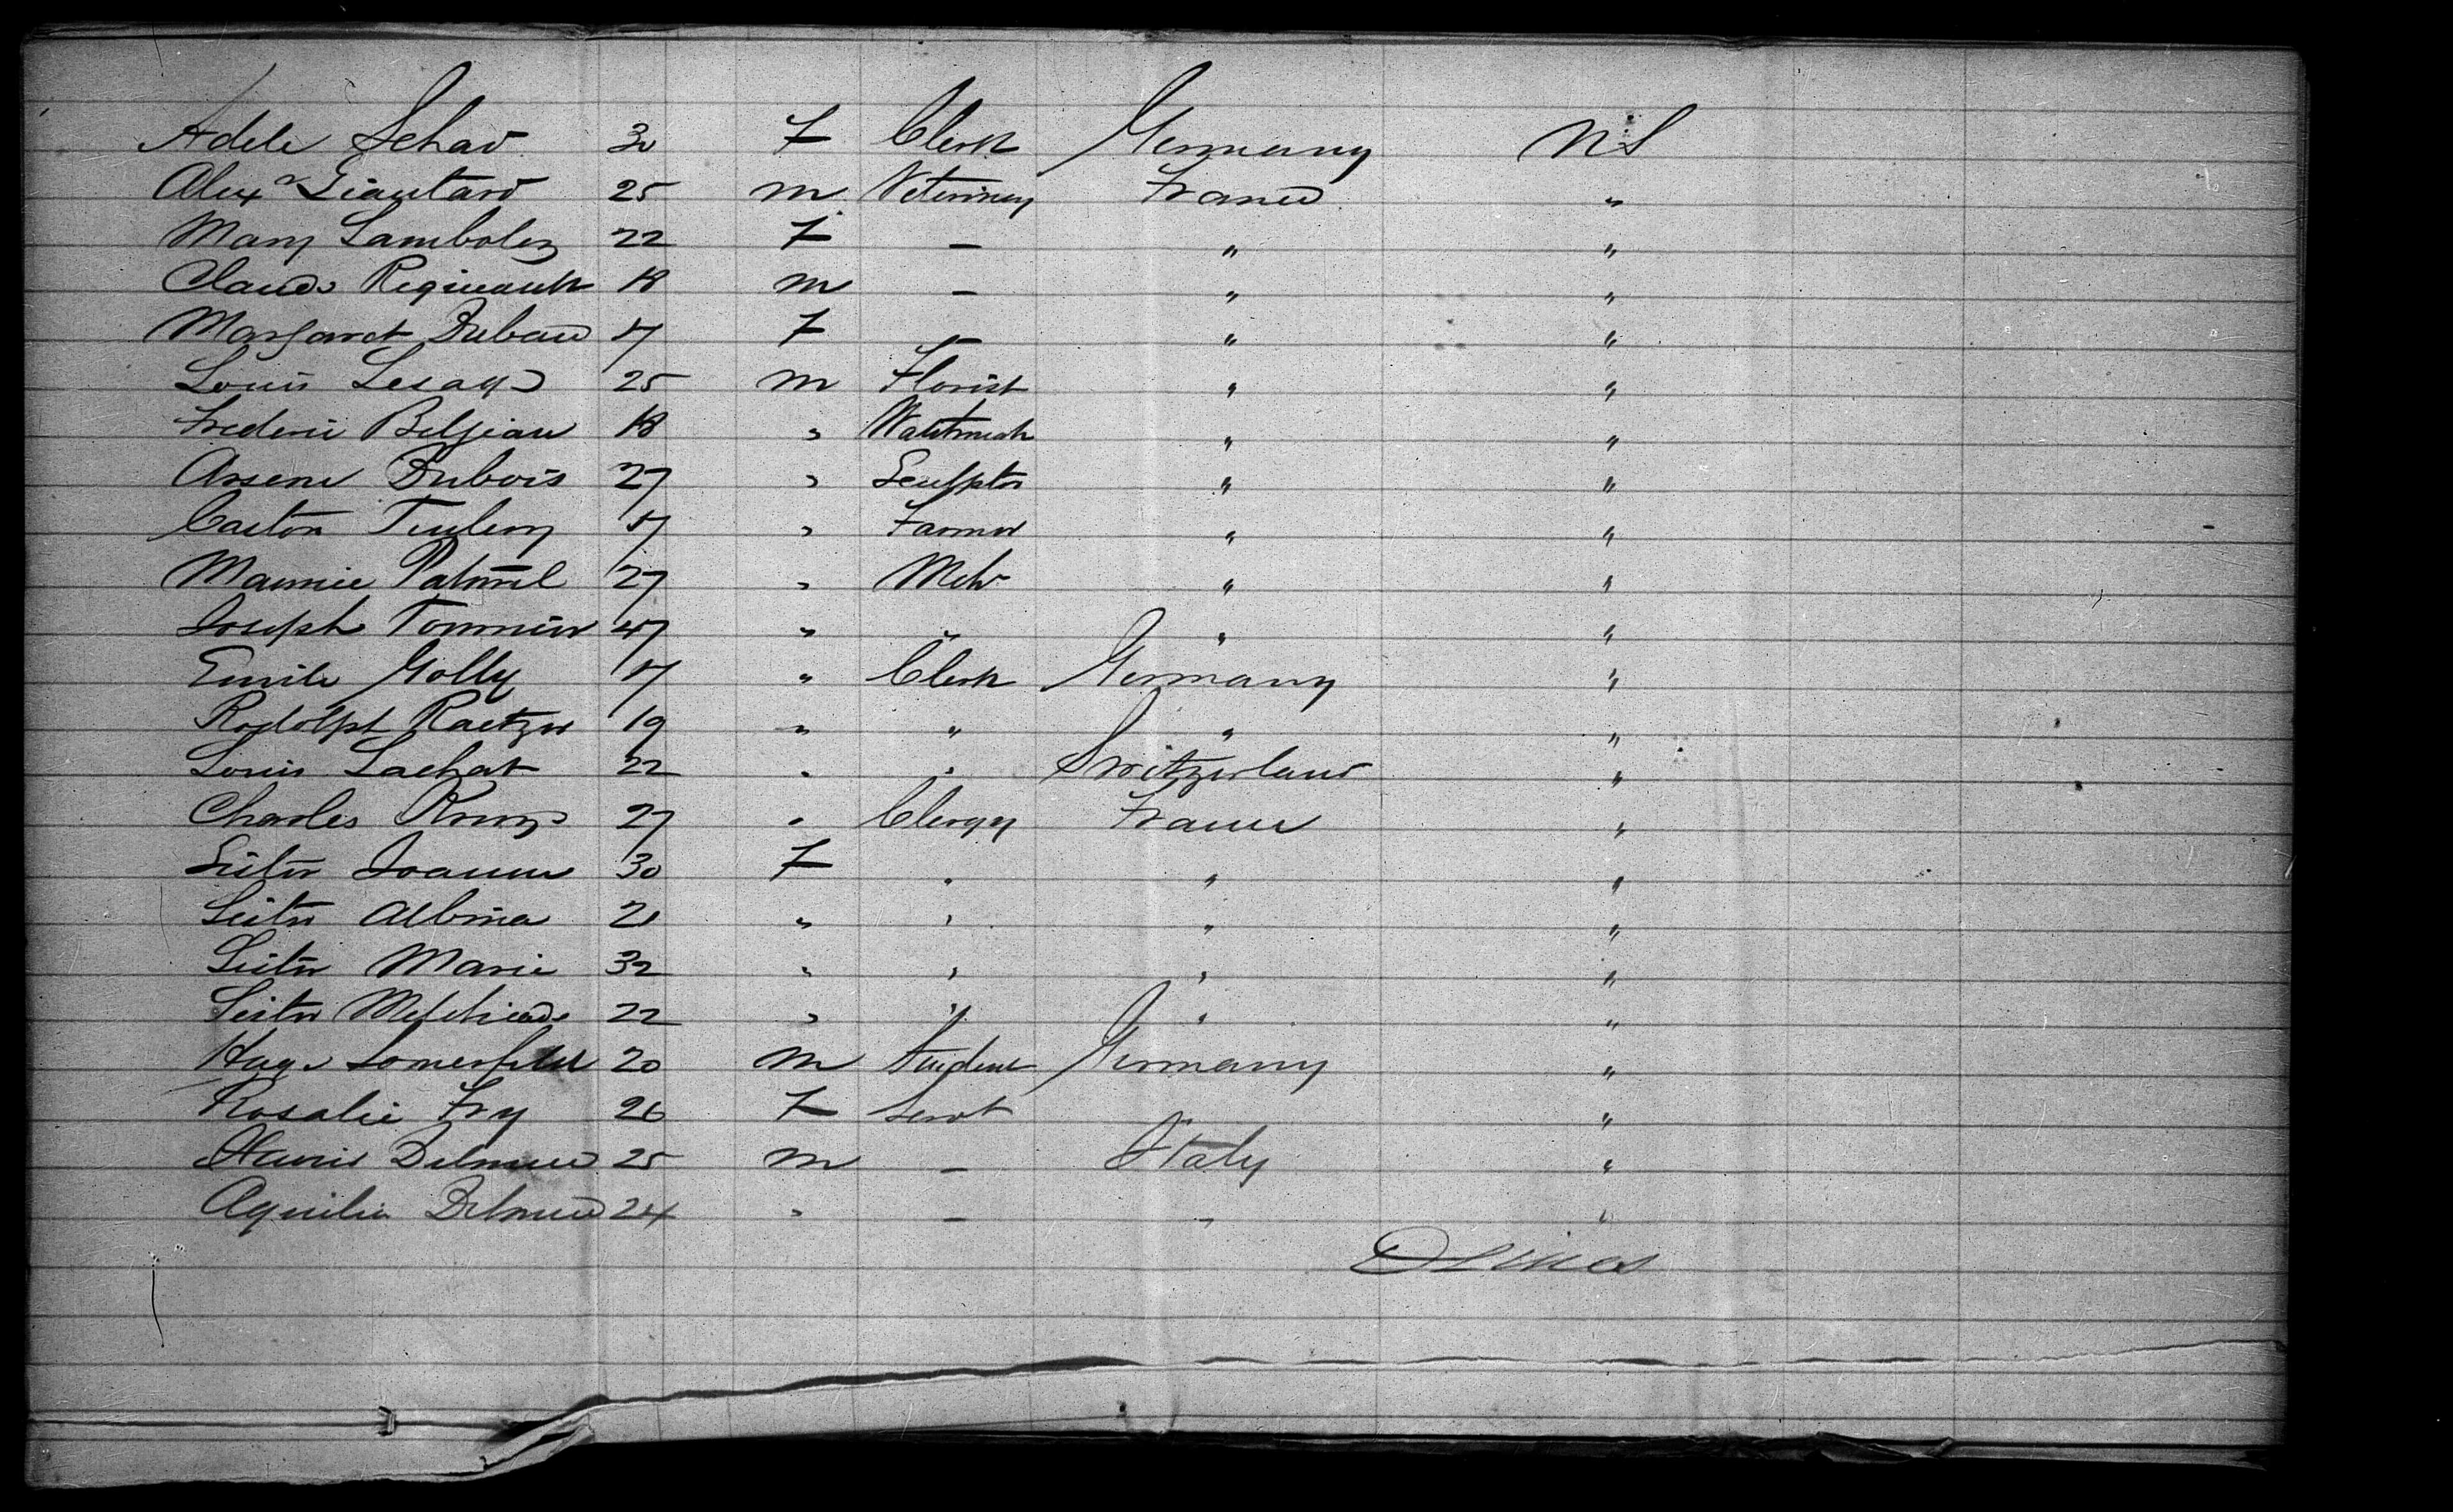 Adele Schad 30 F Clerk Germany US
Alexr Liautard 25 M Veterinary France "
Mary Lambolez 22 F — " "
Claude Regineault 18 M — " "
Margaret Dubaud 17 F — " "
Louis Lesage 25 M Florist " "
Frederic Beljean 18 " Watchmak " "
Arsene Dubois 27 " Sculptor " "
Gaston 17 " Farmer " "
Maurice 27 " Mchr " "
Joseph 47 " " " "
Emile Golly 17 " Clerk Germany "
Rodolph Raetzer 19 " " " "
Louis Lachat 22 " " Switzerland "
Charles 27 " Clergy France "
Sister Joanne 30 F " " "
Sister Albina 21 " " " "
Sister Marie 32 " " " "
Sister 22 " " " "
Hugo Somerfeld 20 M Student Germany "
Rosalie Fry 26 F Servt " "
25 M — Italy "
24 " — " "